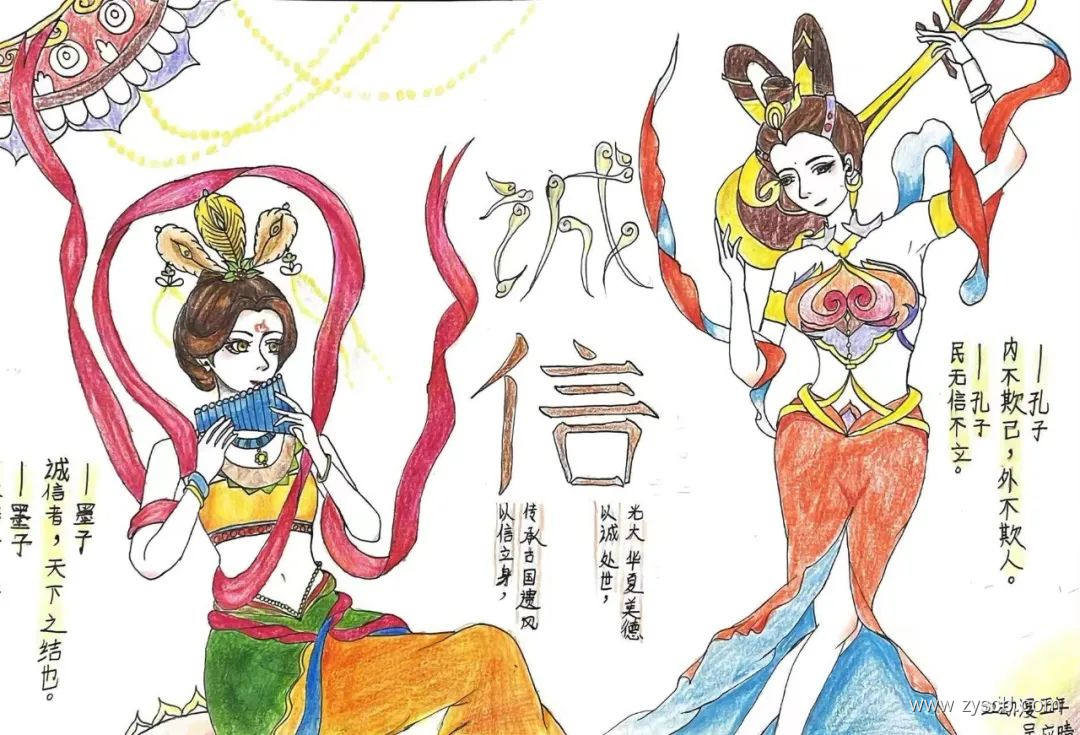 诚信
——孔子
内不欺己，外不欺人。
——孔子
民无信不立。
光大华夏美德
以诚处世，
传承古国遗风
以信立身，
——墨子
诚信者，天下之结也。
——墨子